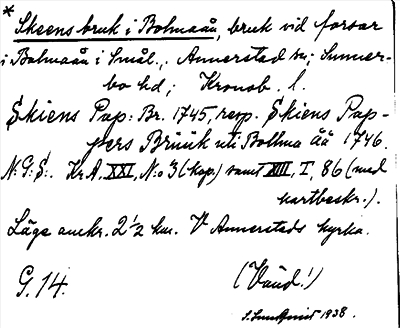 * Skeens bruk i Bolmaån, bruk vid forsar
i Bolmaån i Smål., Annerstad sn; Sunner-
bo hd; Kronob. l.
Skiens Pap: Br. 1745, resp. Skiens Pap-
pers Brüük uti Bollma Åå 1746.
N: G: S:. Kr. A. XXI, N:o 3 (kop) samt XIII, I, 86 (med
kartbeskr.).
Läge omkr. 2 1/2 km. V Annerstads kyrka.
G. 14. (Vaud!)
1938.